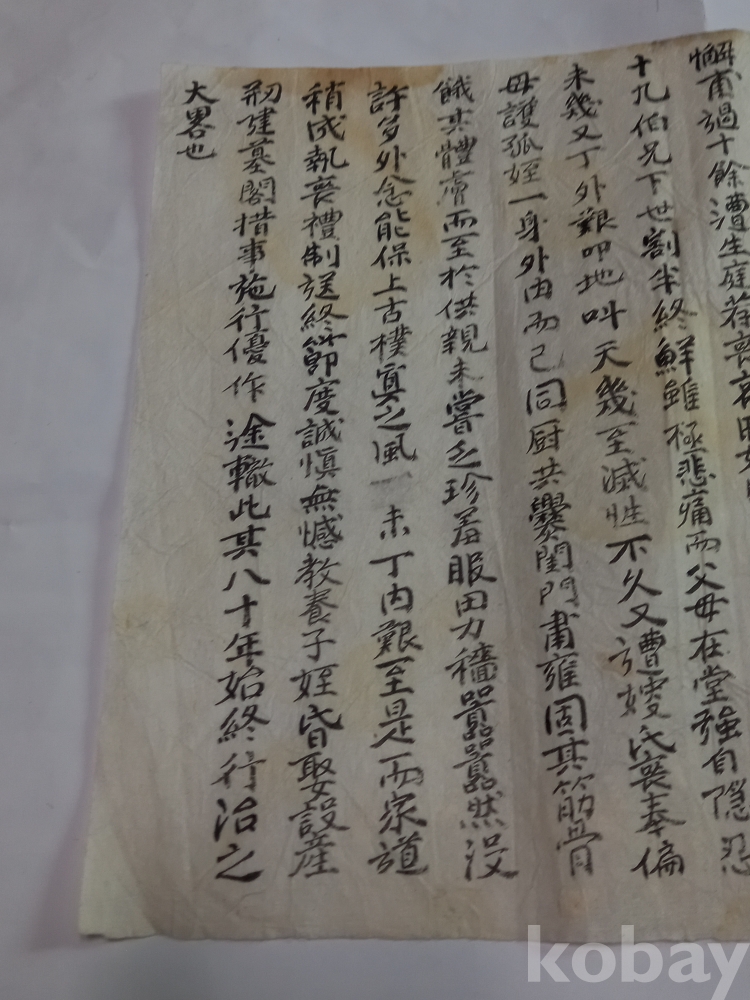 懈甫過十餘遭生庭荐喪
十九伯兄下世割半終鮮雖極悲痛而父母在堂強自隱忍
未幾又丁外艱叩地叫天幾至滅性不久又遭嫂氏喪奉偏
母護孤姪一身外內而已同厨共爨閨門肅雍固其筋骨
餓其體膚而至於供親未嘗乏珍羞服田力穡囂囂然沒
許多外念能保上古樸實之風 未丁內艱至是而家道
稍成執喪禮制送終節度誠愼無憾教養子姪昏娶設產
刱建墓閣措事施行優作途轍此其八十年始終行治之
大畧也
kobay